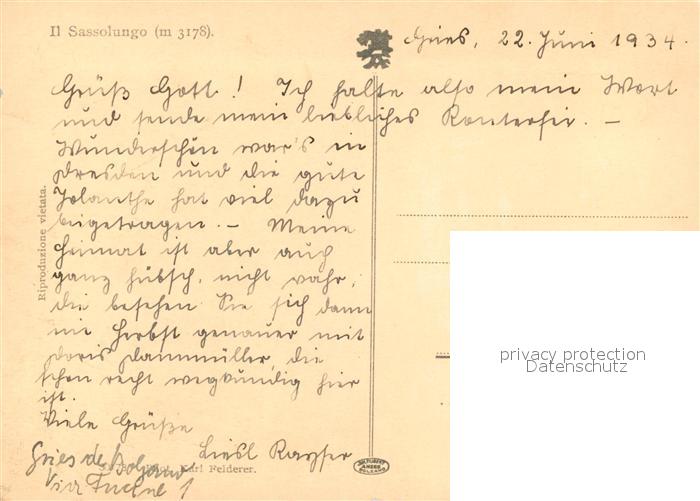 Il Sassolungo (m 3178).
Gries, 22. Juni 1934.
Grüß Gott! Ich halte also mein Wort
und sende mein liebliches Konterfei. –
Wunderschön war's in
Dresden und die gute
Jolanthe hat viel dazu
beigetragen. – Meine
Heimat ist aber auch
ganz hübsch, nicht wahr,
die besehen Sie sich dann
im Herbst genauer mit
Doris Dannmüller, die
schon recht wegkundig hier
ist.
Viele Grüße
Liesl Kayser
Gries de Bolzano
Via 1
Karl Felderer.
Riproduzione vietata.
privacy protection
Datenschutz